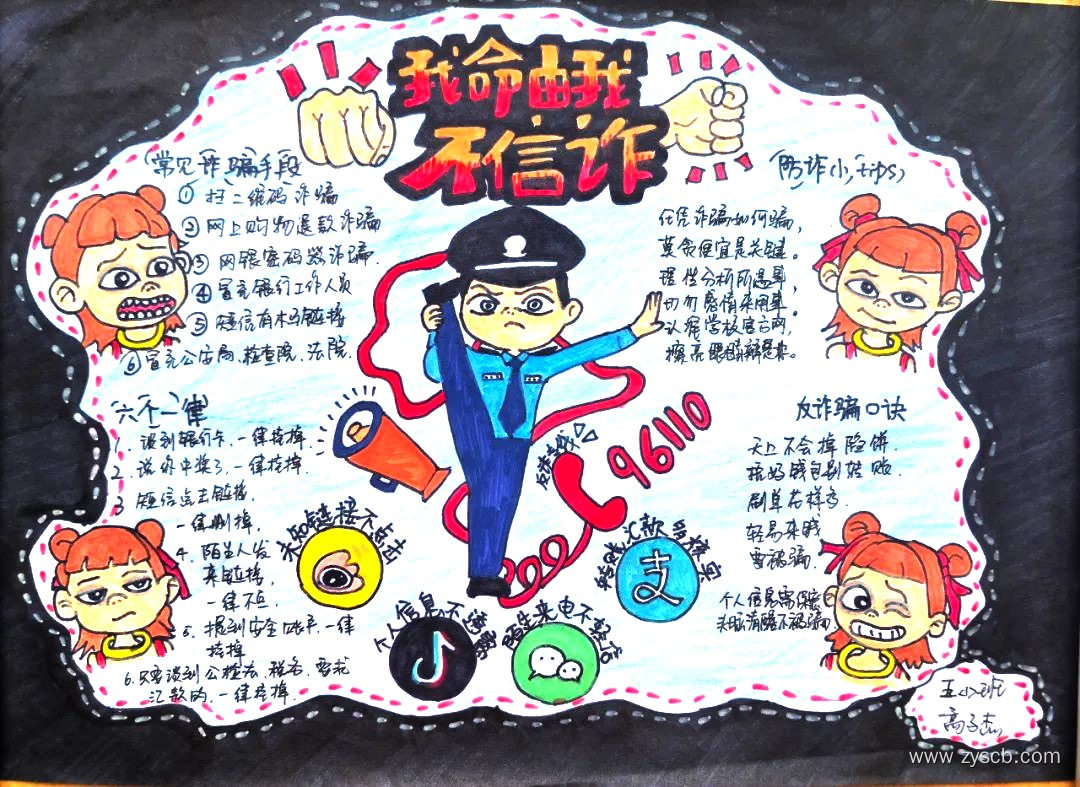 我命由我
不信诈
常见诈骗手段
① 扫二维码诈骗
② 网上购物退款诈骗
③ 网银密码器诈骗.
④ 冒充银行工作人员
⑤ 短信有木马链接
⑥ 冒充公安局、检查院、法院.
防诈小tips,
任凭诈骗如何骗,
莫贪便宜是关键。
理性分析所遇事,
切勿感情来用事。
认准学校官方网,
擦亮眼睛辩是非。
六个一律
1. 谈到银行卡,一律挂掉.
2. 说你中奖了,一律挂掉.
3 短信点击链接,
一律删掉.
4. 陌生人发
来链接,
一律不点.
5. 提到安全账户,一律
挂掉
6. 谈到公检法、税务、要我
汇款的,一律挂掉.
反诈骗口诀
天上不会掉馅饼.
捂好钱包别转账.
刷单
轻易来钱
要被骗.
个人信息需保密
头脑清醒不被骗
反诈专线
96110
未知链接不点击
个人信息不透露
陌生来电不轻信
转账汇款多核实
支
五(2)班
高子杰
www.zyscb.com